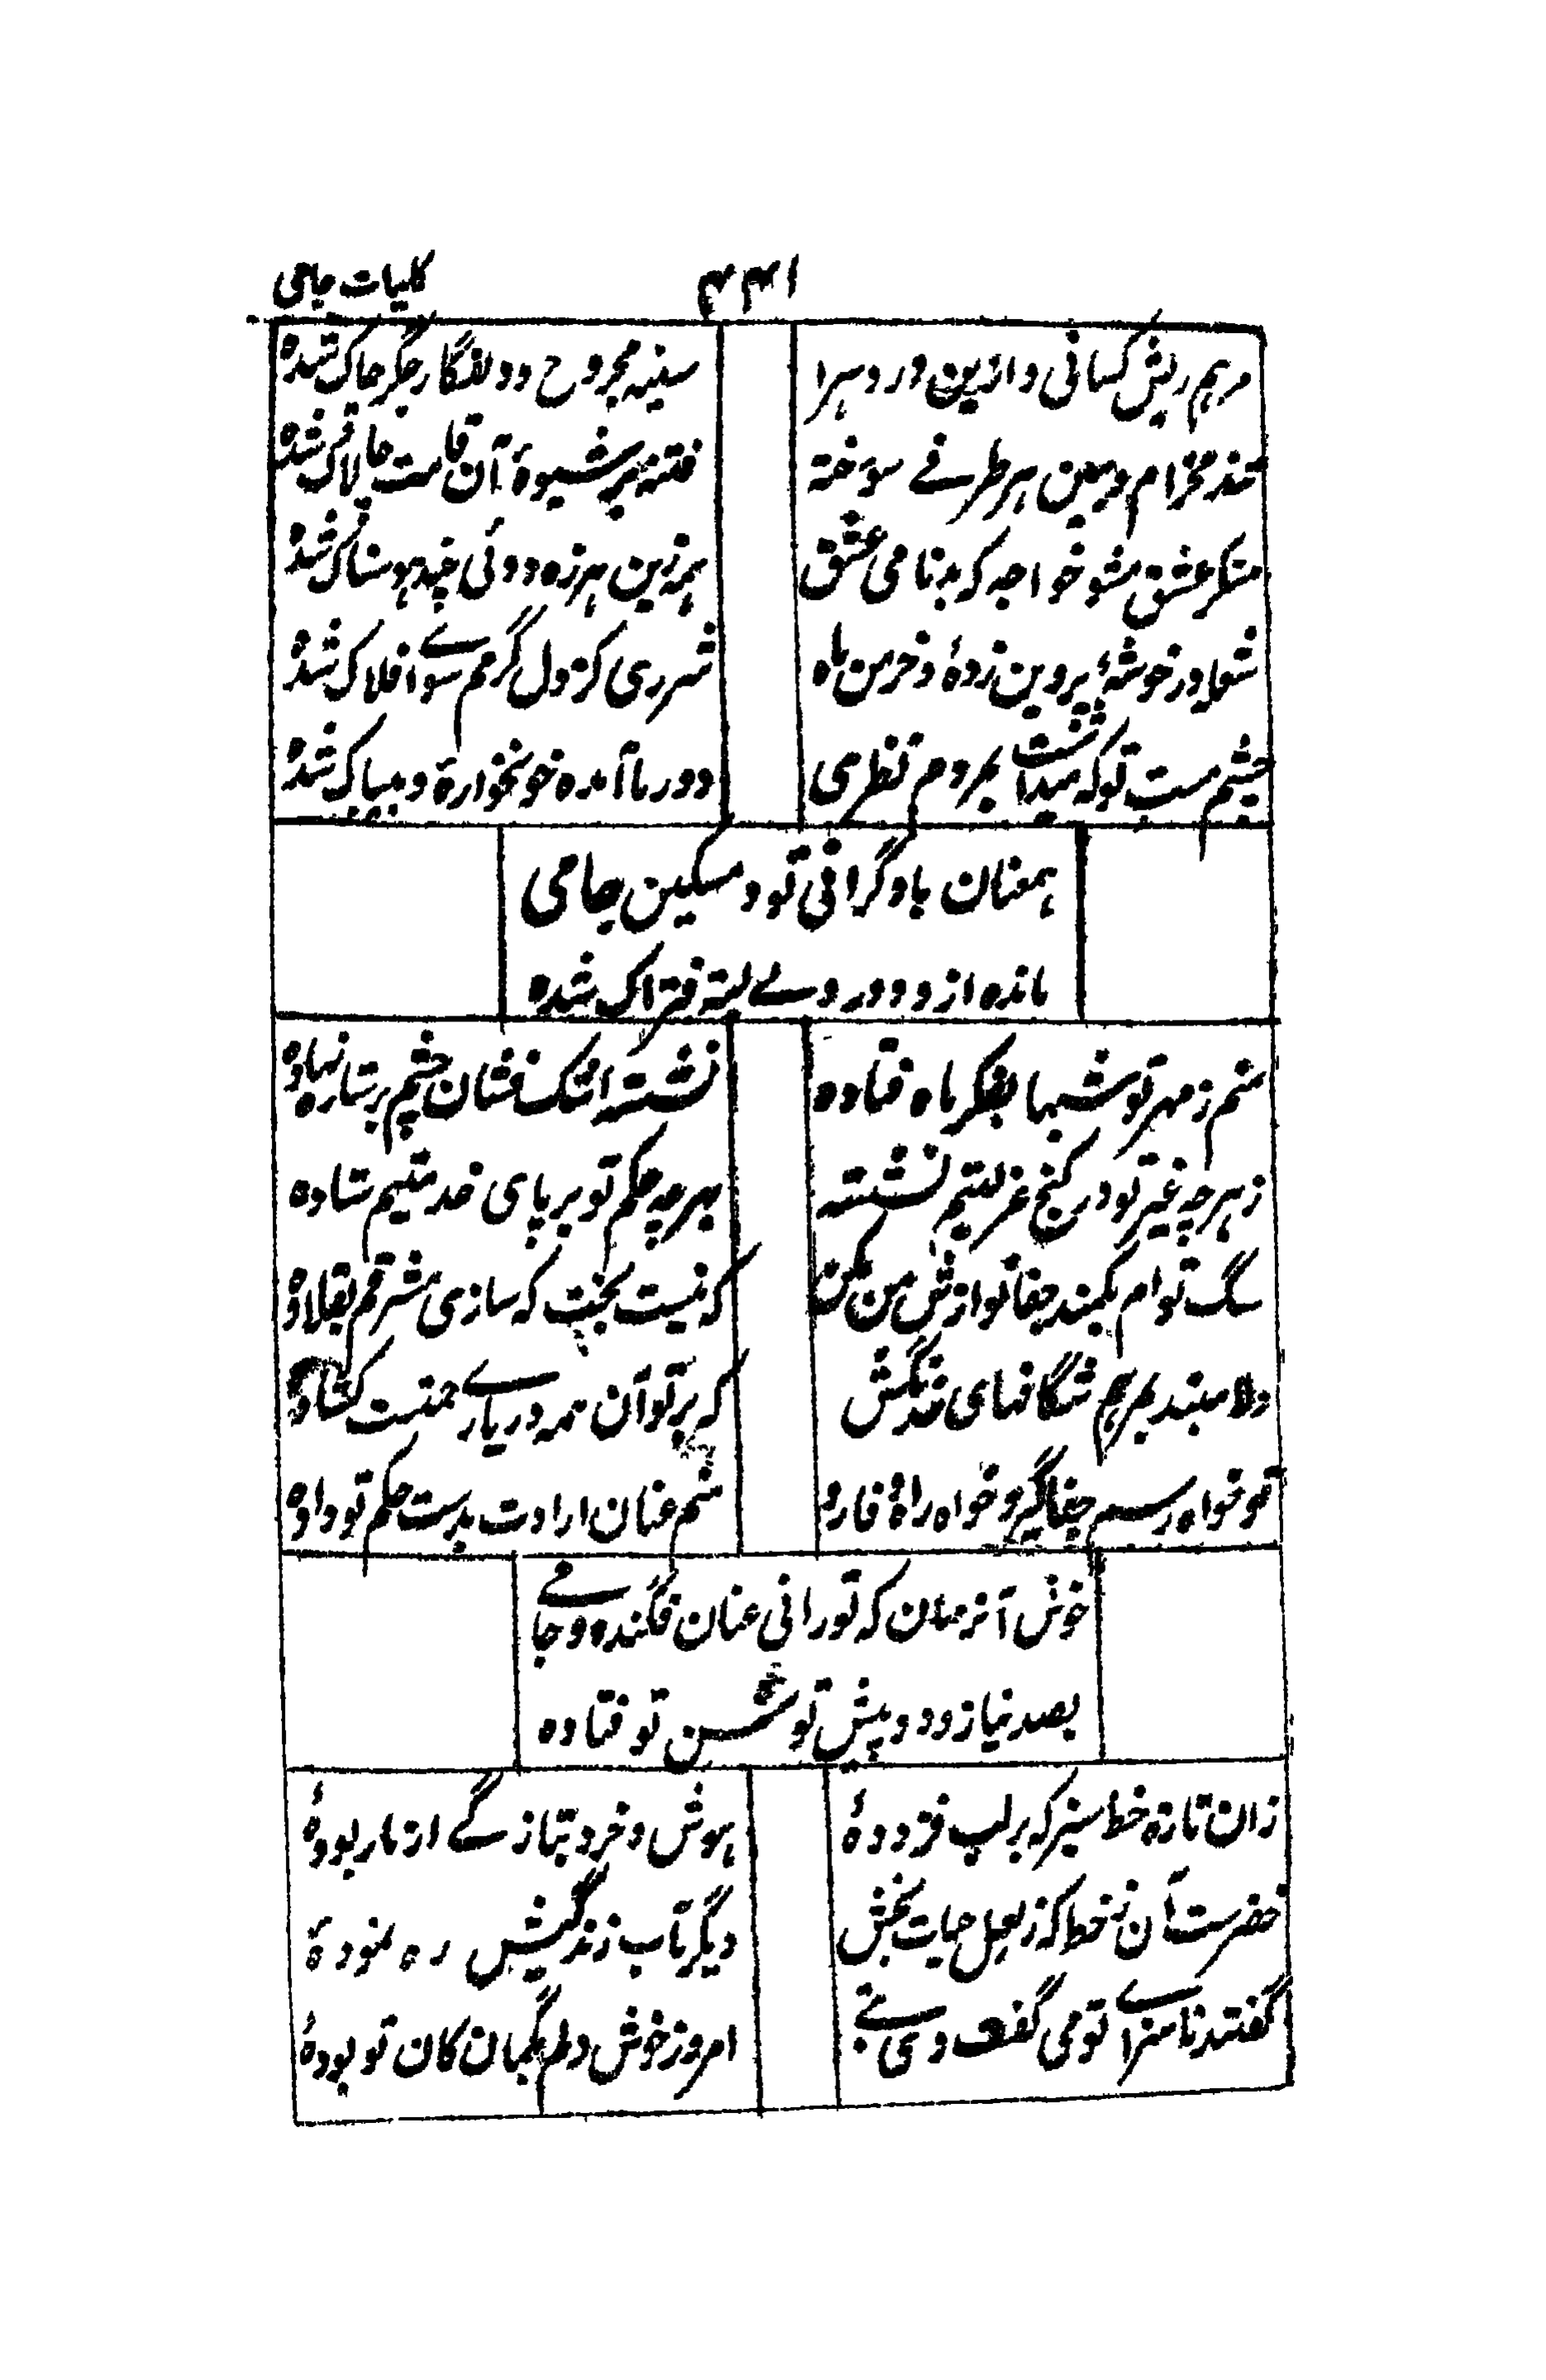 کلیات جامی
۴۴۱
مرہم ریش کسانی و ازین درد مرا
سینہ مجروح و دل افگار و جگر چاک شدہ
تند مخرام و ببین ہر طرفے سوختہ
فتنہ بر شیوۀ آن قامت چالاک شدہ
منکر عشق مشو خواجہ کہ بدنامی عشق
ہمہ زین ہرزہ دوئی چند ہوسناک شدہ
شعلہ در خوشۂ پروین زدہ و خرمن ماہ
شرری کز دل گرمم سوے افلاک شدہ
چشم مست تو کہ میداشت بمردم نظری
دور ما آمدہ خونخوارۀ و بیباک شدہ
ہمعنان باد گرانی تو و مسکین جامی
ماندہ از دور ولے بستہ فتراک شدہ
منم ز مہر تو شبہا بفکر ماہ فتادہ
نشستہ اشک فشان چشم بر ستارہ نہادہ
ز ہر چہ غیر تو در کنج عزلتیم نشستہ
بہر چہ حکم تو بر پای خدمتیم ستادہ
سگ تو ام بکمند جفا نوازش من کن
کہ نیست بخت کہ سازی مشرفم بقلادہ
دلا مبند بمرہم شگافہای خدنگش
کہ بر تو آن ہمہ درہاے رحمتست کشادہ
تو خواہ رسم جفا گیر و خواہ راہ وفا رو
منم عنان ارادت بدست حکم تو دادہ
خوش آنزمان کہ تو رانی عنان فگندہ و جامے
بصد نیاز دود پیش توسن تو فتادہ
زان تازہ خط سبز کہ بر لب فزودۀ
ہوش و خرد بتازگے از ما ربودۀ
خضرست آن نہ خط کہ ز لعل حیات بخش
دیگر بآب زندگیش رہ نمودۀ
گفتند ناسزاے تو می گفت دی بے
امروز خوش دلم بگمان کان تو بودۀ